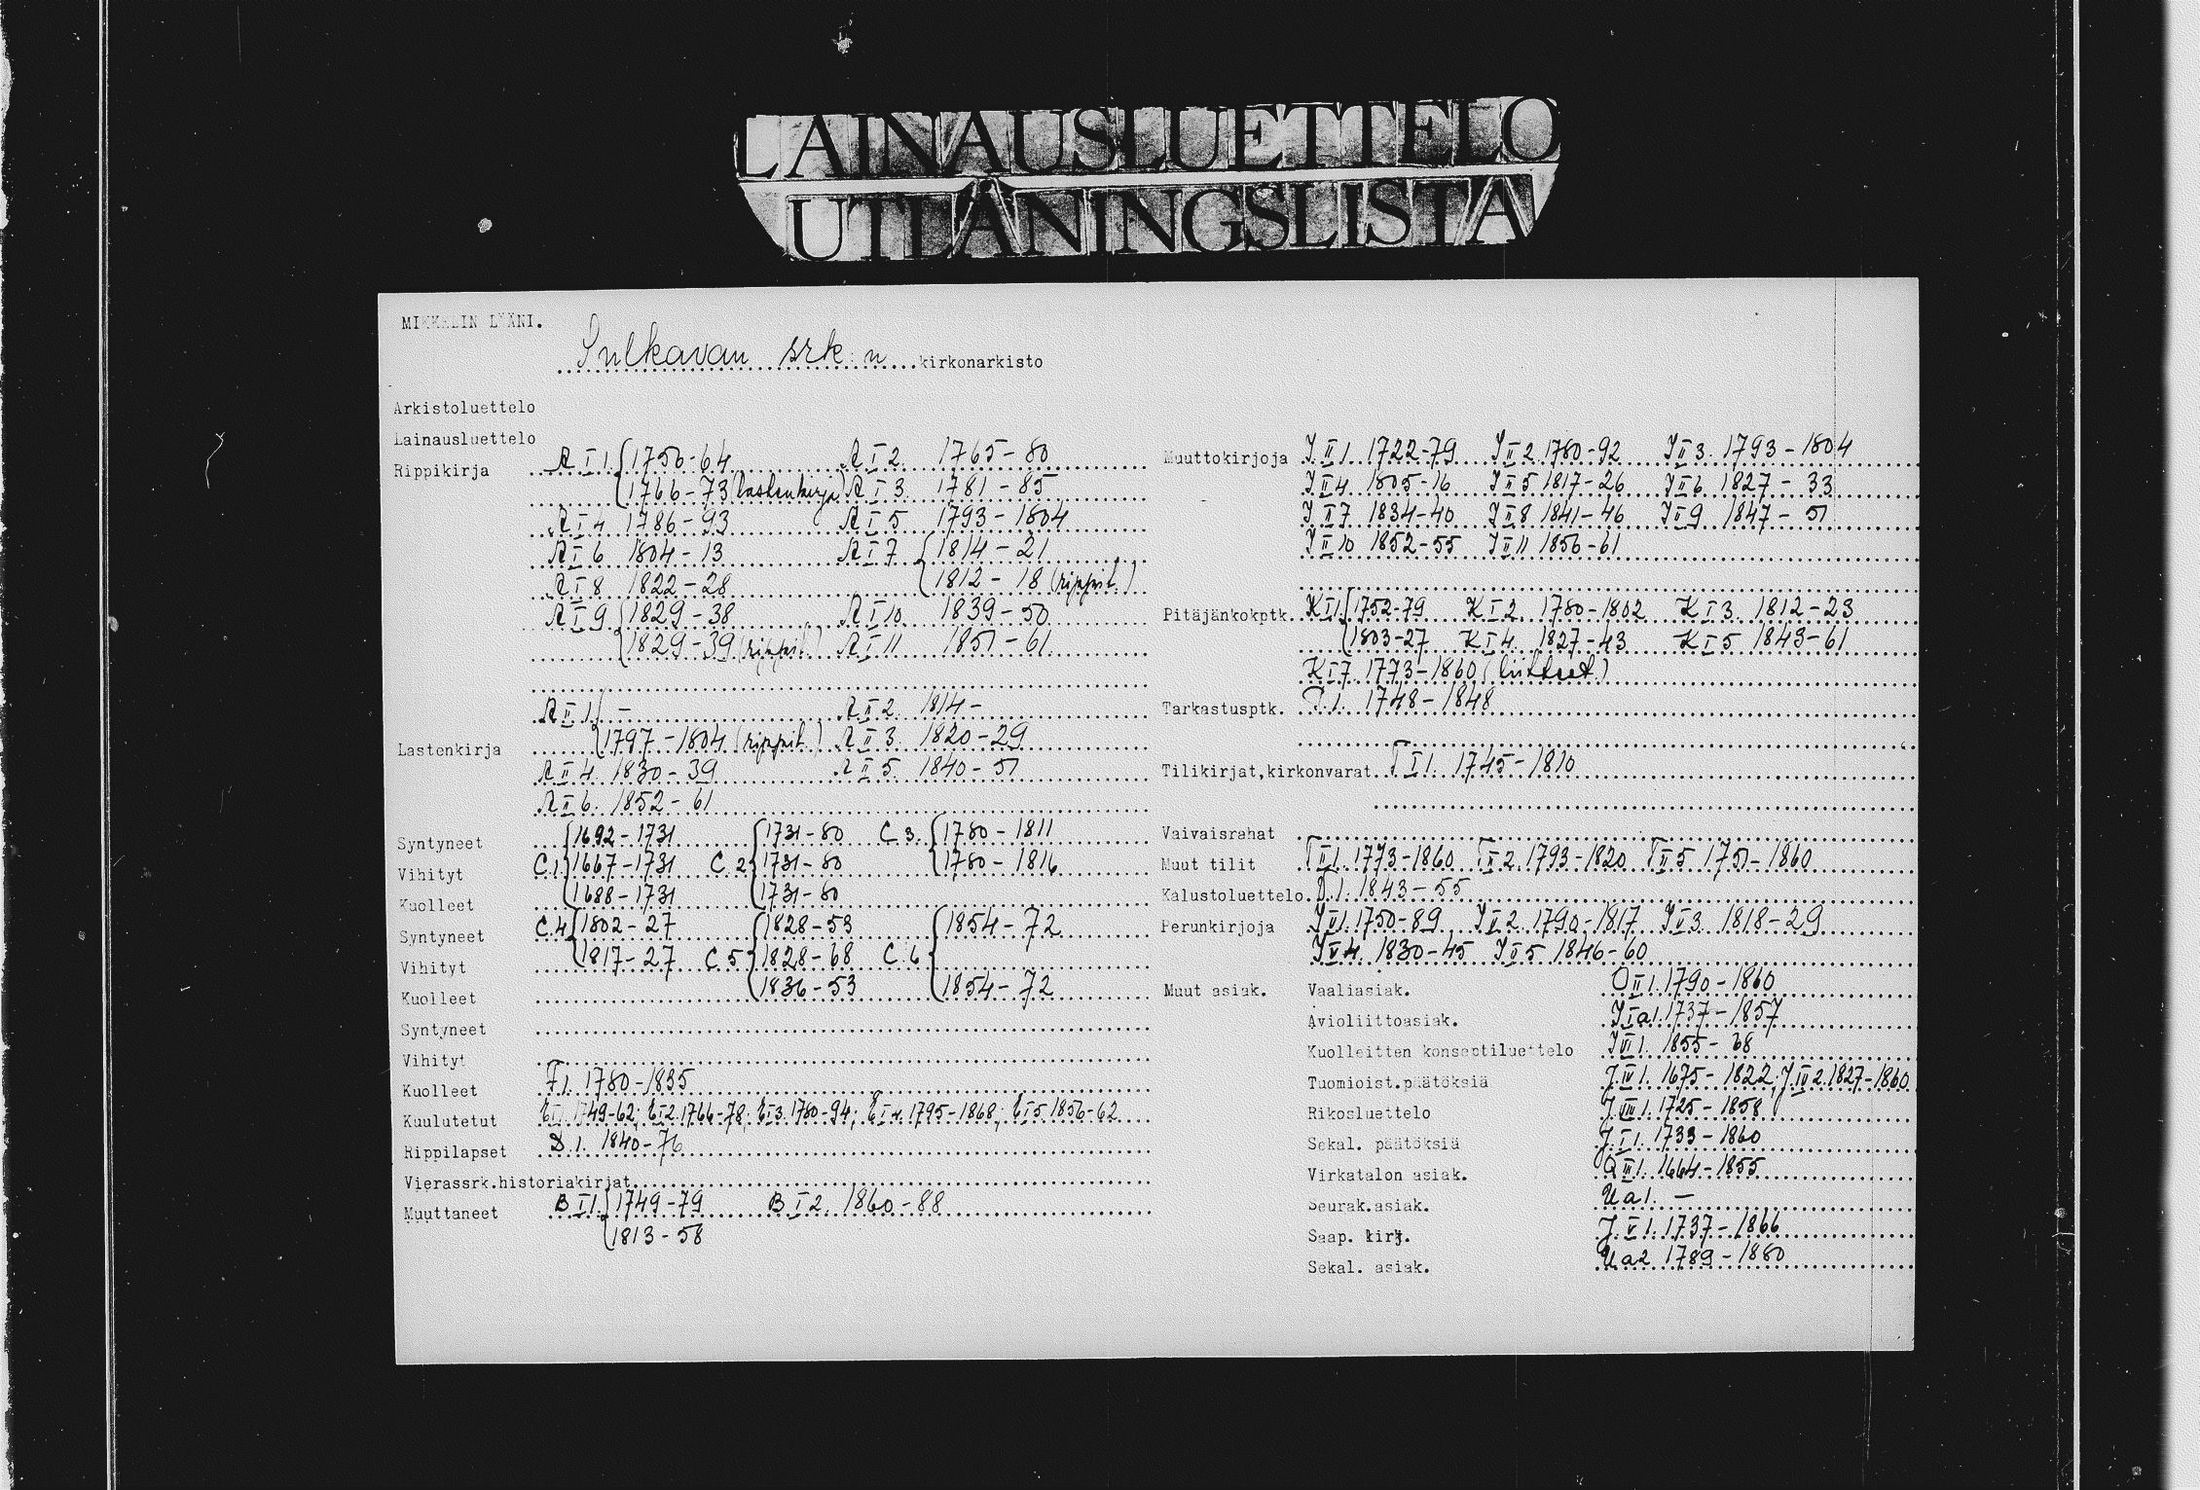 LAINAUSLUETTELO
UTLÅNINGSLISTA
MIKKELIN LÄÄNI.
Sulkavan srk:n kirkonarkisto
Arkistoluettelo
Lainausluettelo
Rippikirja A I 1. 1756-64 A I 2. 1765-80
1766-73 (lastenkirja) A I 3. 1781-85
A I 4 1786-93 A I 5 1793-1804
A I 6 1804-13 A I 7 1814-21
A I 8 1822-28 1812-18 (rippit.)
A I 9 1829-38 A I 10 1839-50
1829-39 (rippit.) A I 11 1851-61
A II 1. - A II 2. 1814-
Lastenkirja 1797-1804 (rippit.) A II 3. 1820-29
A II 4. 1830-39 A II 5. 1840-51
A II 6. 1852-61
Syntyneet 1692-1731 1731-80 C 3. 1780-1811
Vihityt C.1. 1667-1731 C.2 1731-80 1780-1816
Kuolleet 1688-1731 1731-80
Syntyneet C.4 1802-27 1828-53 1854-72
Vihityt 1817-27 C.5 1828-68 C.6
Kuolleet 1836-53 1854-72
Syntyneet
Vihityt
Kuolleet F1. 1780-1835
Kuulutetut E I 1. 1749-62; E I 2. 1766-78; E I 3. 1780-94; E I 4. 1795-1868; E I 5 1856-62
Rippilapset D.1. 1840-76
Vierassrk.historiakirjat
Muuttaneet B I 1. 1749-79 B I 2. 1860-88
1813-58
Muuttokirjoja I II 1. 1722-79 I II 2 1780-92 I II 3. 1793-1804
I II 4 1805-16 I II 5 1817-26 I II 6 1827-33
I II 7 1834-40 I II 8 1841-46 I II 9 1847-51
I II 10 1852-55 I II 11 1856-61
Pitäjänkokptk. K I 1. 1752-79 K I 2. 1780-1802 K I 3. 1812-23
1803-27 K I 4. 1827-43 K I 5 1843-61
K I 7 1773-1860 (liitteet)
Tarkastusptk. 1. 1748-1848
Tilikirjat,kirkonvarat T I 1. 1745-1810
Vaivaisrahat
Muut tilit T II 1. 1773-1860 T II 2. 1793-1820 T II 5 1751-1860
Kalustoluettelo 1. 1843-55
Perunkirjoja 1750-89 2. 1790-1817 3. 1818-29
4. 1830-45 5 1846-60
Muut asiak. Vaaliasiak. O II 1. 1790-1860
Avioliittoasiak. I I a1. 1737-1857
Kuolleitten konseptiluettelo 1. 1855-68
Tuomioist.päätöksiä 1. 1675-1822, 2. 1827-1860
Rikosluettelo J III 1. 1725-1858
Sekal. päätöksiä J I 1. 1733-1860
Virkatalon asiak. 1. 1664-1855
Seurak.asiak. U a 1. -
Saap. kirj. J V 1. 1737-1866
Sekal. asiak. U a 2 1789-1880